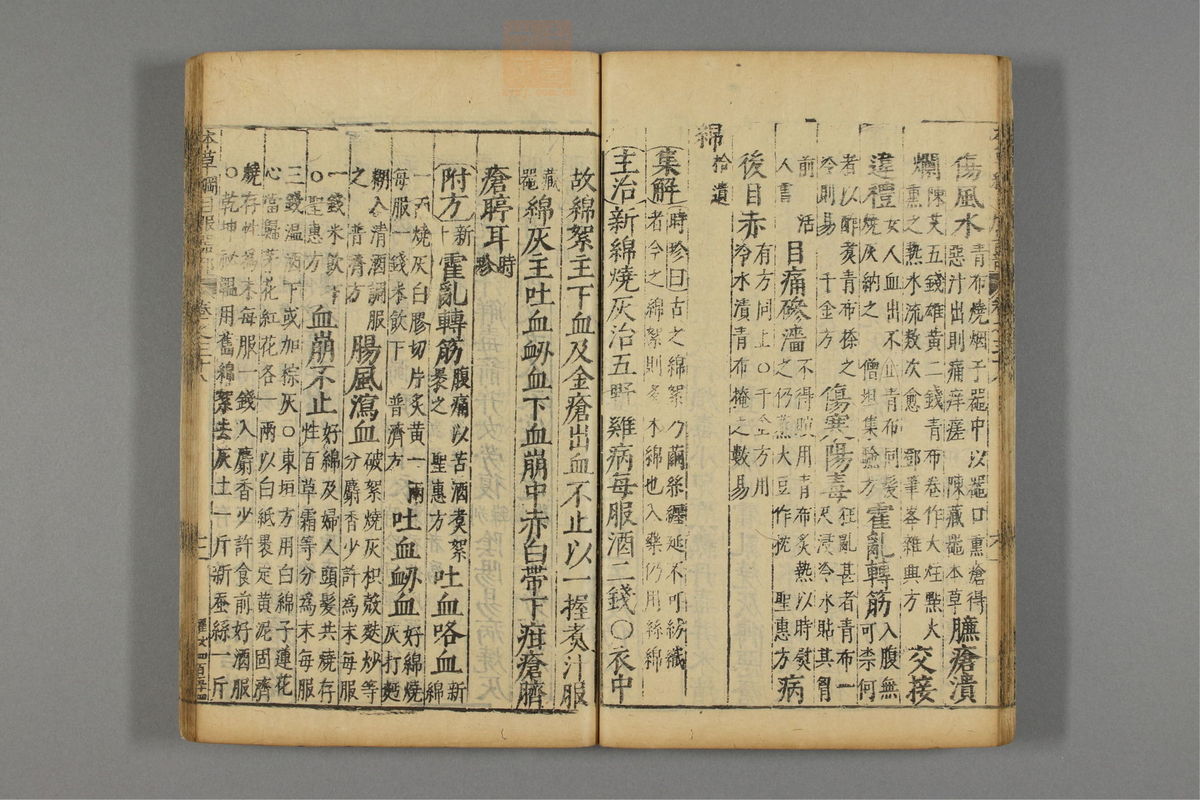 傷風水 青布燒烟于噐中以噐口熏瘡得惡汁出則痛痒瘥 陳藏噐本草 臁瘡潰
爛 陳艾五錢雄黃二錢青布卷作大炷㸃火熏之熱水流數次愈 鄧筆峯雜興方 交接
違禮 女人血出不止青布同髮燒灰納之 僧坦集驗方 霍亂轉筋 入腹無可柰何
者以酢煮青布搽之冷則易 千金方 傷寒陽毒 狂亂甚者青布一尺浸冷水貼其胷
前 活人書 目痛磣濇 不得瞑用青布炙熱以時熨之仍蒸大豆作枕 聖惠方 病
後目赤 有方同上〇千金方用冷水漬青布掩之數易
綿 拾遺
集解 時珍曰古之綿絮乃繭絲纏延不可紡織者今之綿絮則多木綿也入藥仍用絲綿
主治 新綿燒灰治五野雞病每服酒二錢〇衣中
故綿絮主下血及金瘡出血不止以一握煮汁服
藏噐 綿灰主吐血衂血下血崩中赤白帶下疳瘡臍
瘡聤耳 時珍
附方 新 霍亂轉筋 腹痛以苦酒煮絮裹之 聖惠方 吐血咯血 新綿
一兩燒灰白膠切片炙黃一兩每服一錢米飲下 普濟方 吐血衂血 好綿燒灰打麪
糊入清酒調服之 普濟方 腸風瀉血 破絮燒灰枳殼麩炒等分麝香少許為末每服
一錢米飲下〇聖惠方 血崩不止 好綿及婦人頭髮共燒存性百草霜等分為末每服
三錢溫酒下或加棕灰〇東垣方用白綿子蓮花心當歸茅花紅花各一兩以白紙裹定黃泥固濟
燒存性為末每服一錢入麝香少許食前好酒服〇乾坤秘韞用舊綿絮去灰土一斤新蚕絲一斤